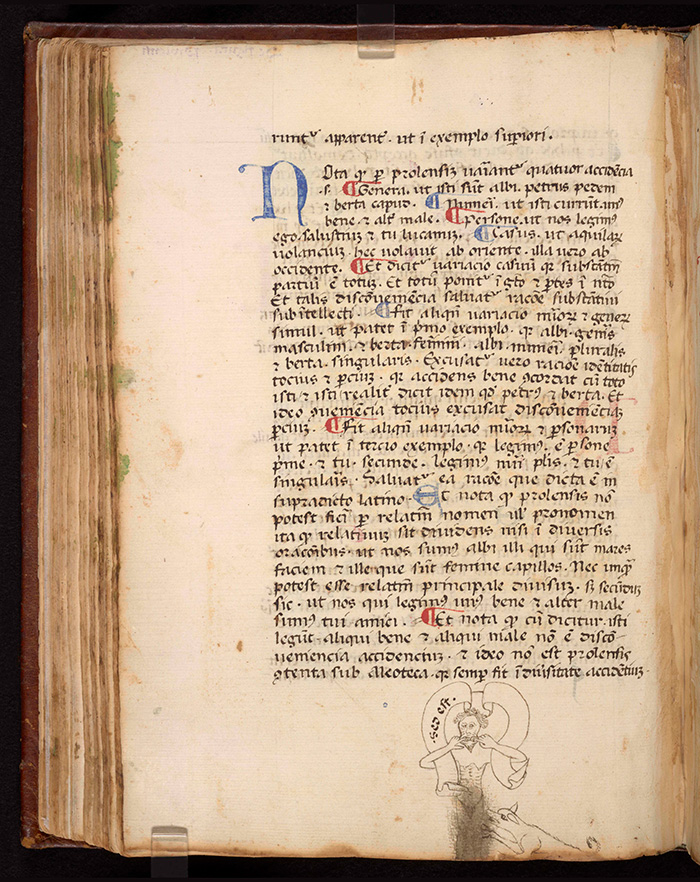 runtur apparent. ut ĩ exemplo supiori.
Nota ꝙ ꝑ prolensiz uariantur quatuor accidẽcia
.s. ¶Genera. ut isti sũt albi. petrus pedem
⁊ berta caput. ¶Numeri. ut isti currũt. unus
bene. ⁊ alt male. ¶Persone. ut nos legimꝯ
ego salustiuz ⁊ tu lucanuz. ¶Casus. ut aquilaꝝ
uolanciuz. hec uolauit ab oriente. illa uero ab
occidente. ¶Et dicitur uariacio casuũ qꝛ substãtiuũ
partiũ ẽ totuz. Et totũ ponitur ĩ gto ⁊ ꝑtes ĩ nto
Et talis discõueniẽcia saluatur racõe substãtiui
sub ĩtellecti. ¶Fit aliqñ uariacio nũoꝝ ⁊ geneꝝ
simul. ut patet ĩ pmo exemplo. qꝛ albi. geñis
masculini. ⁊ berta feminĩ. albi. numeri pluralis
⁊ berta. singularis. Excusatur uero racõe idẽtitatis
tocius ⁊ ꝑciuz. qꝛ accidens bene ꝯcordat cũ toto
isti ⁊ isti realitẽ dicit idem qđ petrꝯ ⁊ berta. Et
ideo ꝯueniẽcia tocius excusat discõueniẽciaz
ꝑciuz. ¶Fit aliqñ uariacio nũoꝝ ⁊ ꝑsonaruz
ut patet ĩ tercio exemplo. qꝛ legimꝯ. ẽ ꝑsone
pme. ⁊ tu. secunde. legimꝯ nũi plis. ⁊ tu ẽ
singularis. Saluatur ea racõe que dicta ẽ in
supradicto latino. ¶Et nota ꝙ prolensis nõ
potest fieri ꝑ relatiũ nomen ul pronomen
ita ꝙ relatiuuz sit diuidens nisi ĩ diuersis
oracõibus. ut nos sumꝯ albi illi qui sũt mares
faciem ⁊ ille que sũt femine capillos. Nec unqꝫ
potest esse relatiũ principale diuisuz. sꝫ secũduz
sic. ut nos qui legimꝯ unꝯ bene ⁊ alter male
sumꝯ tui amici. ¶Et nota ꝙ cũ dicitur. isti
legũt. aliqui bene ⁊ aliqui male nõ ẽ discõ-
ueniencia accidenciuz. ⁊ ideo nõ est prolensis
ꝯtenta sub Aleoteca. qꝛ semp fit ĩ diuisitate accidẽtiuz.
.sed est.